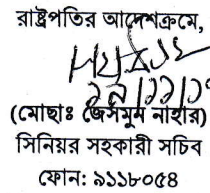 রাষ্ট্রপতির আদেশক্রমে,
(মোছাঃ জেসমুন নাহার)
সিনিয়র সহকারী সচিব
ফোন: ৯১১৮০৫৪